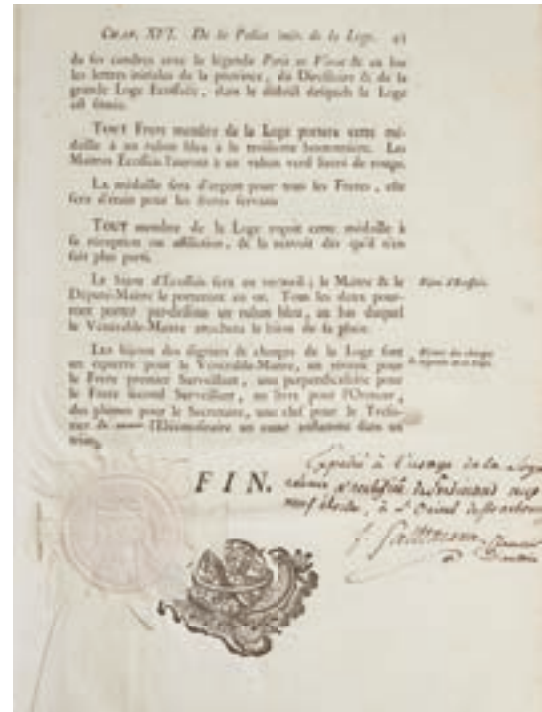 CHAP. XVI. De la Police intér. de la Loge. 43
de ses cendres avec la légende Perit ut Vivat & au bas
les lettres initiales de la province, du Directoire & de la
grande Loge Ecossoise, dans le district desquels la Loge
est située.
TOUT Frere membre de la Loge portera cette mé-
daille à un ruban bleu à la troisieme boutonniere. Les
Maîtres Ecossois l'auront à un ruban verd liseré de rouge.
LA médaille sera d'argent pour tous les Freres, elle
sera d'étain pour les freres servans
TOUT membre de la Loge reçoit cette médaille à
sa réception ou affiliation, & la renvoit dès qu'il n'en
fait plus parti.
LE bijou d'Ecossois sera en vermeil; le Maître & le
Député-Maître le porteront en or. Tous les deux pour-
ront porter par-dessus un ruban bleu, au bas duquel
le Vénérable-Maître attachera le bijou de sa place.
Bijou d'Ecossois.
LES bijoux des dignités & charges de la Loge sont
un équerre pour le Vénérable-Maître, un niveau pour
le Frere premier Surveillant, une perpendiculaire pour
le Frere second Surveillant, un livre pour l'Orateur,
des plumes pour le Secretaire, une clef pour le Tréso-
rier & l'Elémosinaire un cœur enflammé dans un
Bijoux des charges
& dignités de la Loge.
FIN.
Expédié à l'usage de la Loge
réunie & rectifiée de Ferdinand aux
neuf étoiles, à l'Orient de Strasbourg